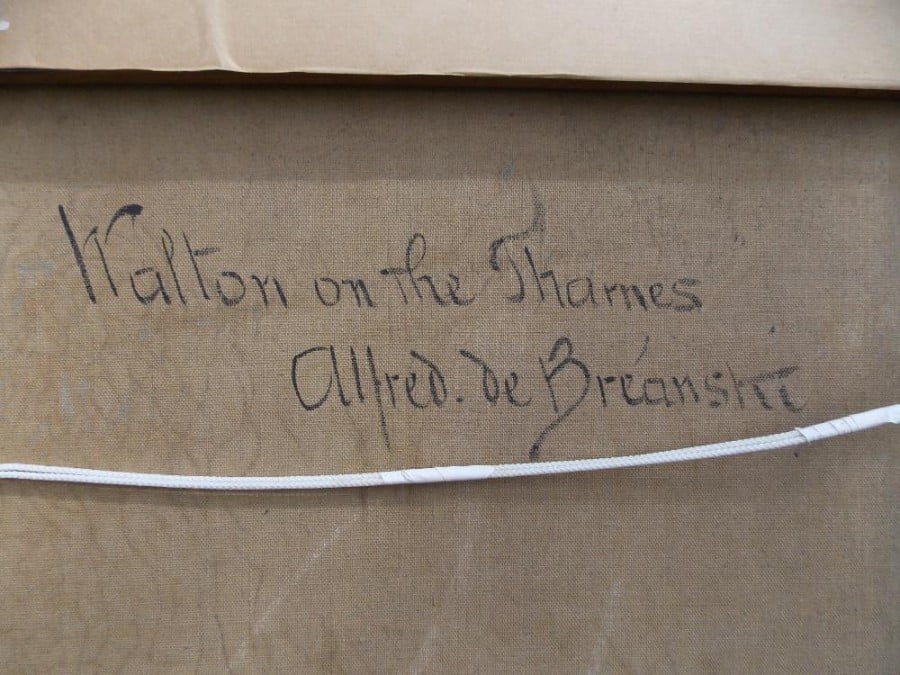 Walton on the Thames
Alfred. de Bréanski